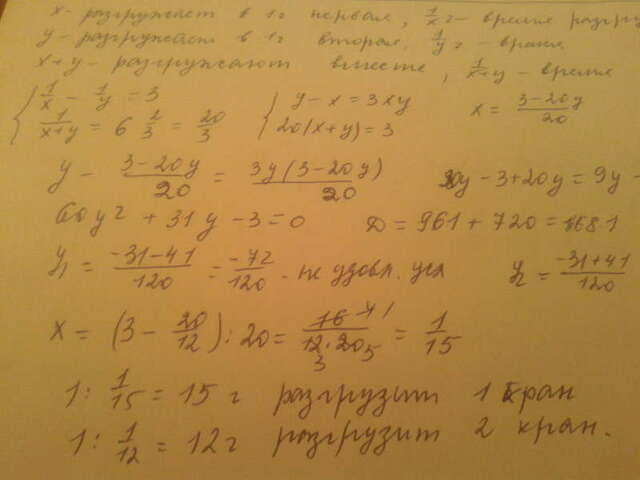 x - разгружает в 1ч первая, 1/x ч - время разгру
y - разгружает в 1ч вторая, 1/y ч - время
x+y - разгружают вместе, 1/x+y - время
{ 1/x - 1/y = 3 { y - x = 3xy x = 3-20y/20
1/x+y = 6 2/3 = 20/3 20(x+y) = 3
y - 3-20y/20 = 3y(3-20y)/20 20y - 3 + 20y = 9y -
60y² + 31y - 3 = 0 D = 961 + 720 = 1681
y₁ = -31-41/120 = -72/120 - не удовл. усл y₂ = -31+41/120
x = (3 - 20/12) : 20 = 16 4 1/12·20 3 5 = 1/15
1 : 1/15 = 15 ч разгрузит 1 кран
1 : 1/12 = 12 ч разгрузит 2 кран.